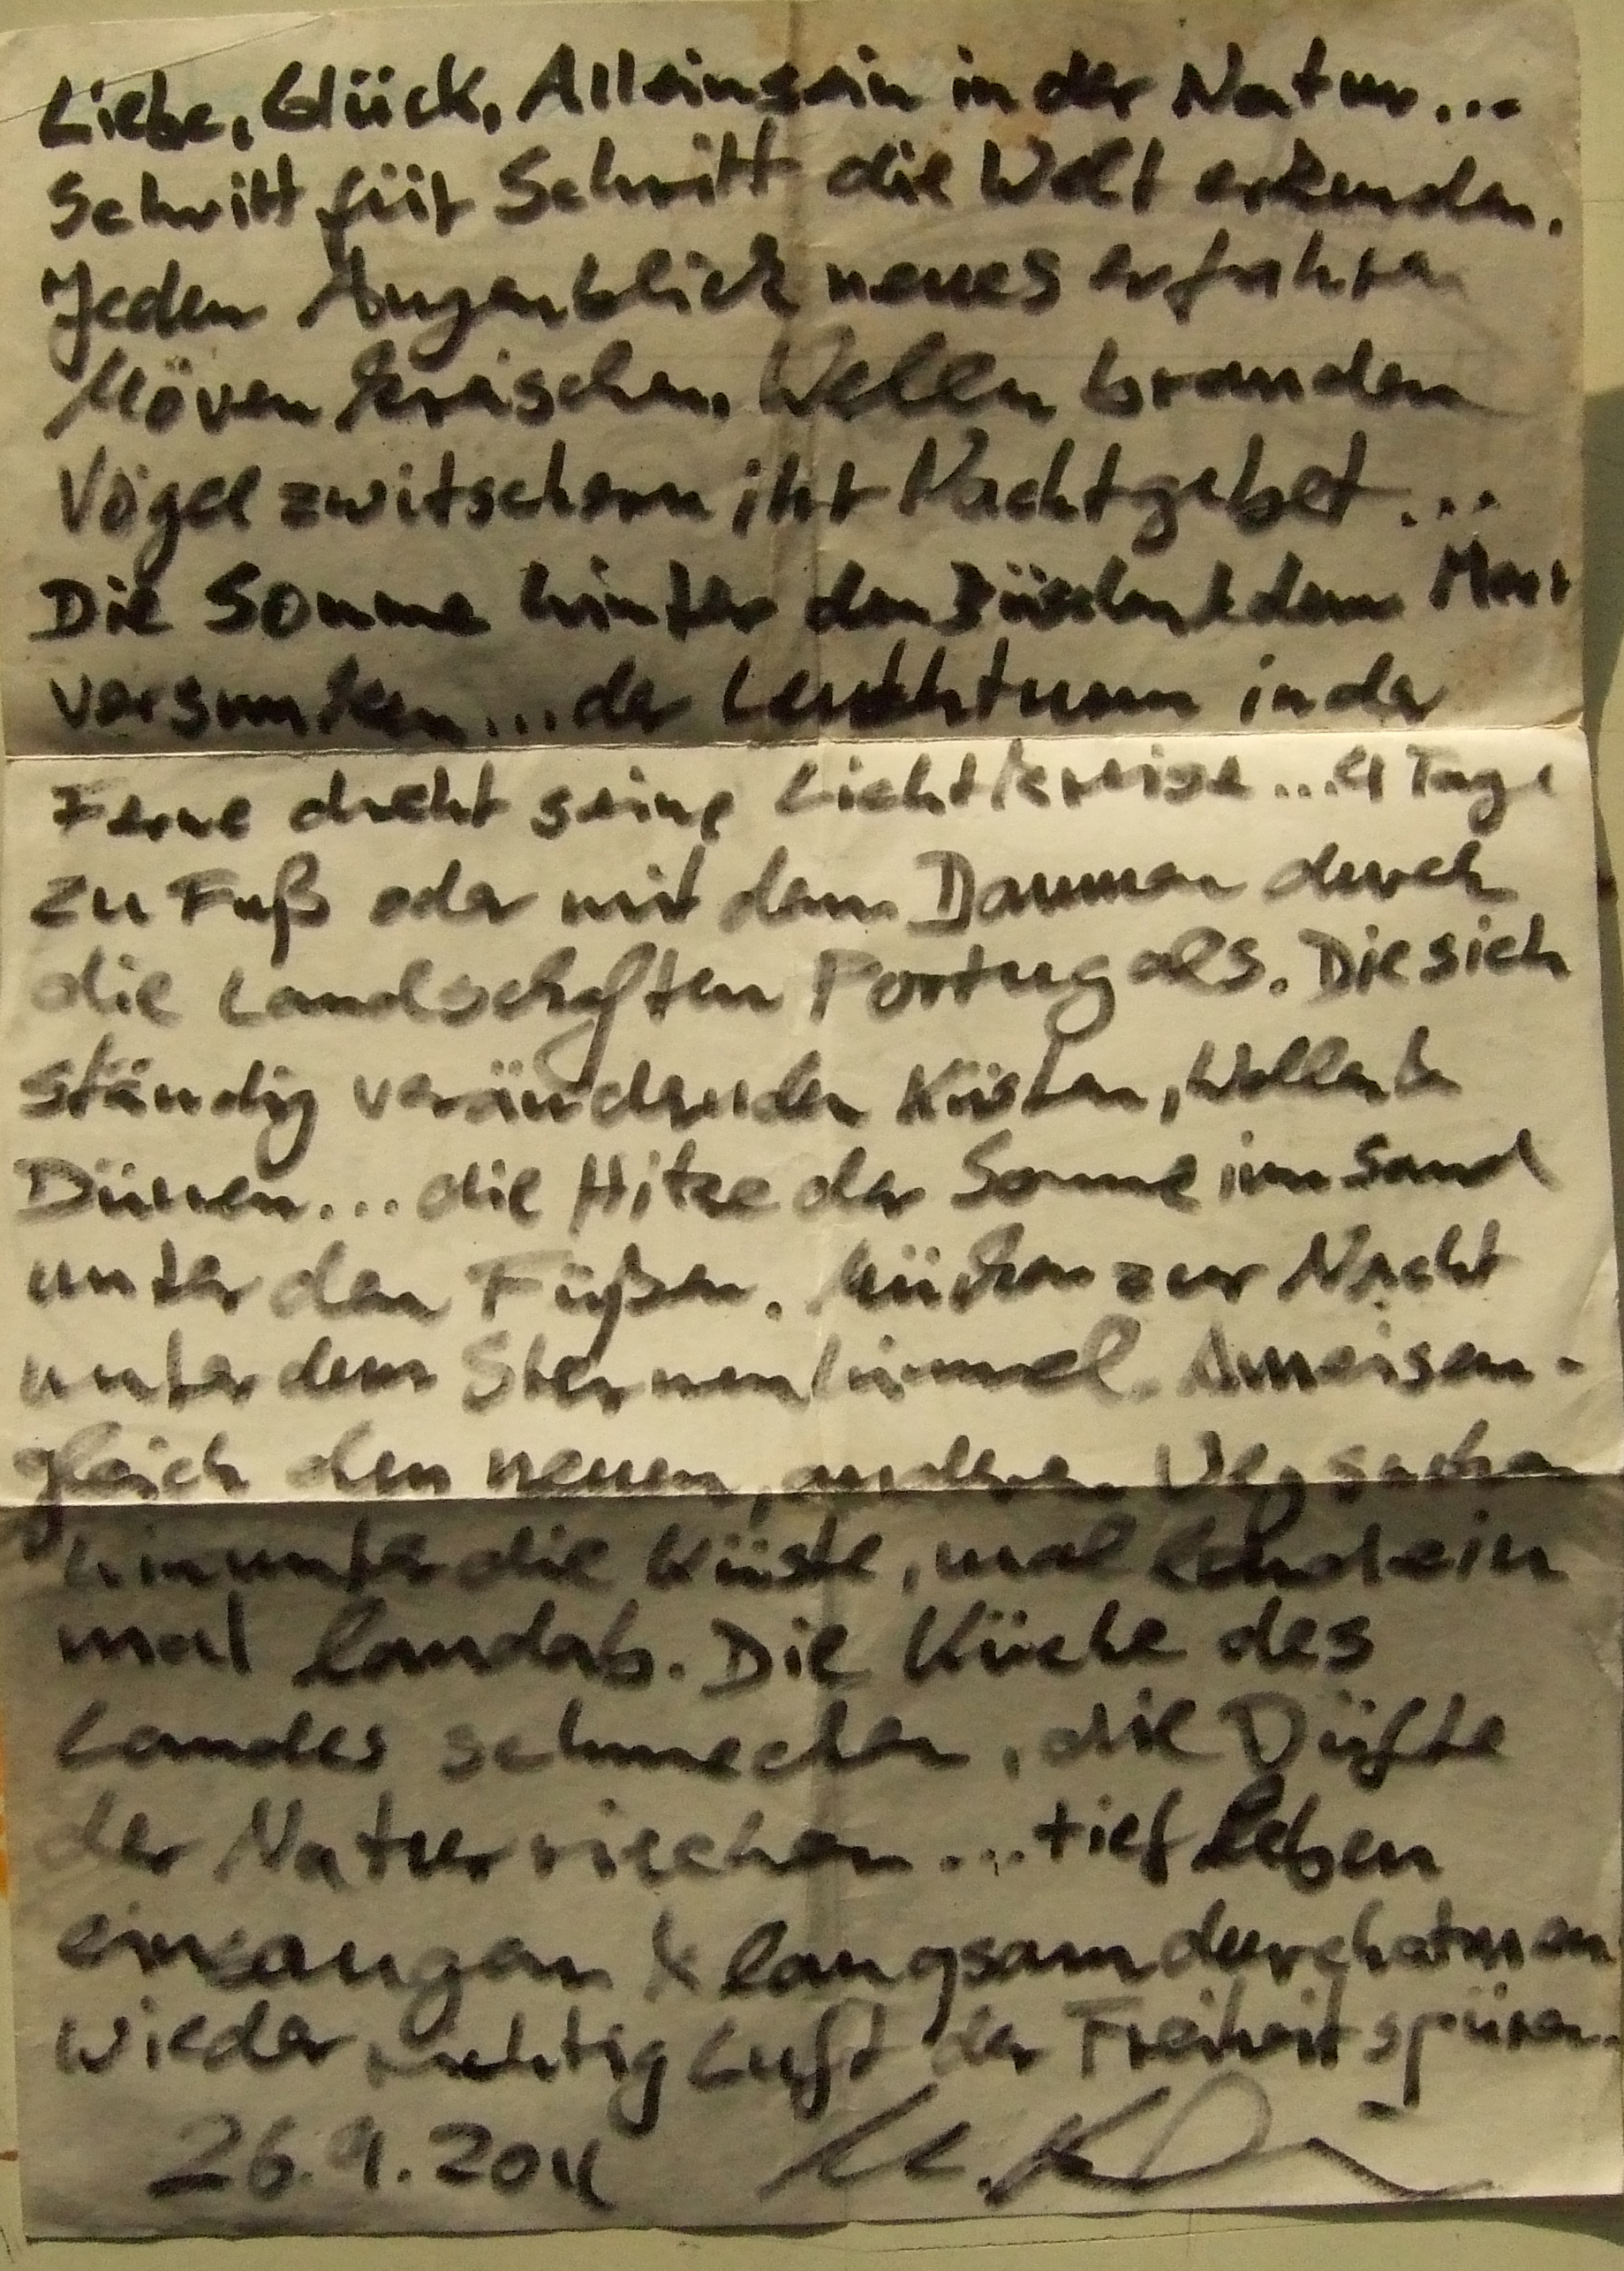 Liebe, Glück, Alleinsein in der Natur...
Schritt für Schritt die Welt erkunden.
Jeden Augenblick neues erfahren
Möven kreischen, Wellen branden
Vögel zwitschern ihr Nachtgebet...
Die Sonne hinter den & dem Meer
versunken... der Leuchtturm in der
Ferne dreht seine Lichtkreise... Tage
zu Fuß oder mit dem Daumen durch
die Landschaften Portugals. Die sich
ständig verändernden Küsten, Wellen &
Dünen... die Hitze der Sonne im Sand
unter den Füßen. Mücken zur Nacht
unter dem Sternenhimmel. Ameisen-
gleich den neuen, anderen Weg suchen
hinunter die Küste, mal landein
mal landab. Die Küche des
Landes schmecken, die Düfte
der Natur riechen... tief Leben
einsaugen & langsam durchatmen
wieder richtig Luft der Freiheit spüren.
26.9.2011